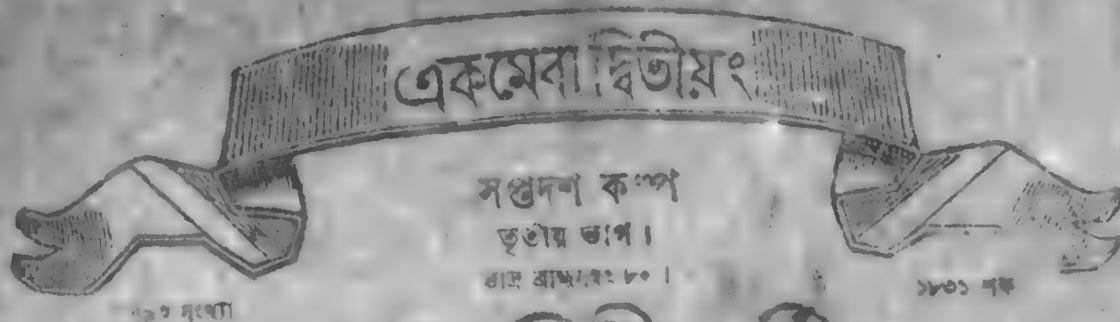 একমেবাদ্বিতীয়ং
সপ্তদশ কল্প
তৃতীয় ভাগ।
ভাদ্র ব্রাহ্মসংবৎ ৮০।
সংখ্যা
১৮৩১ শক